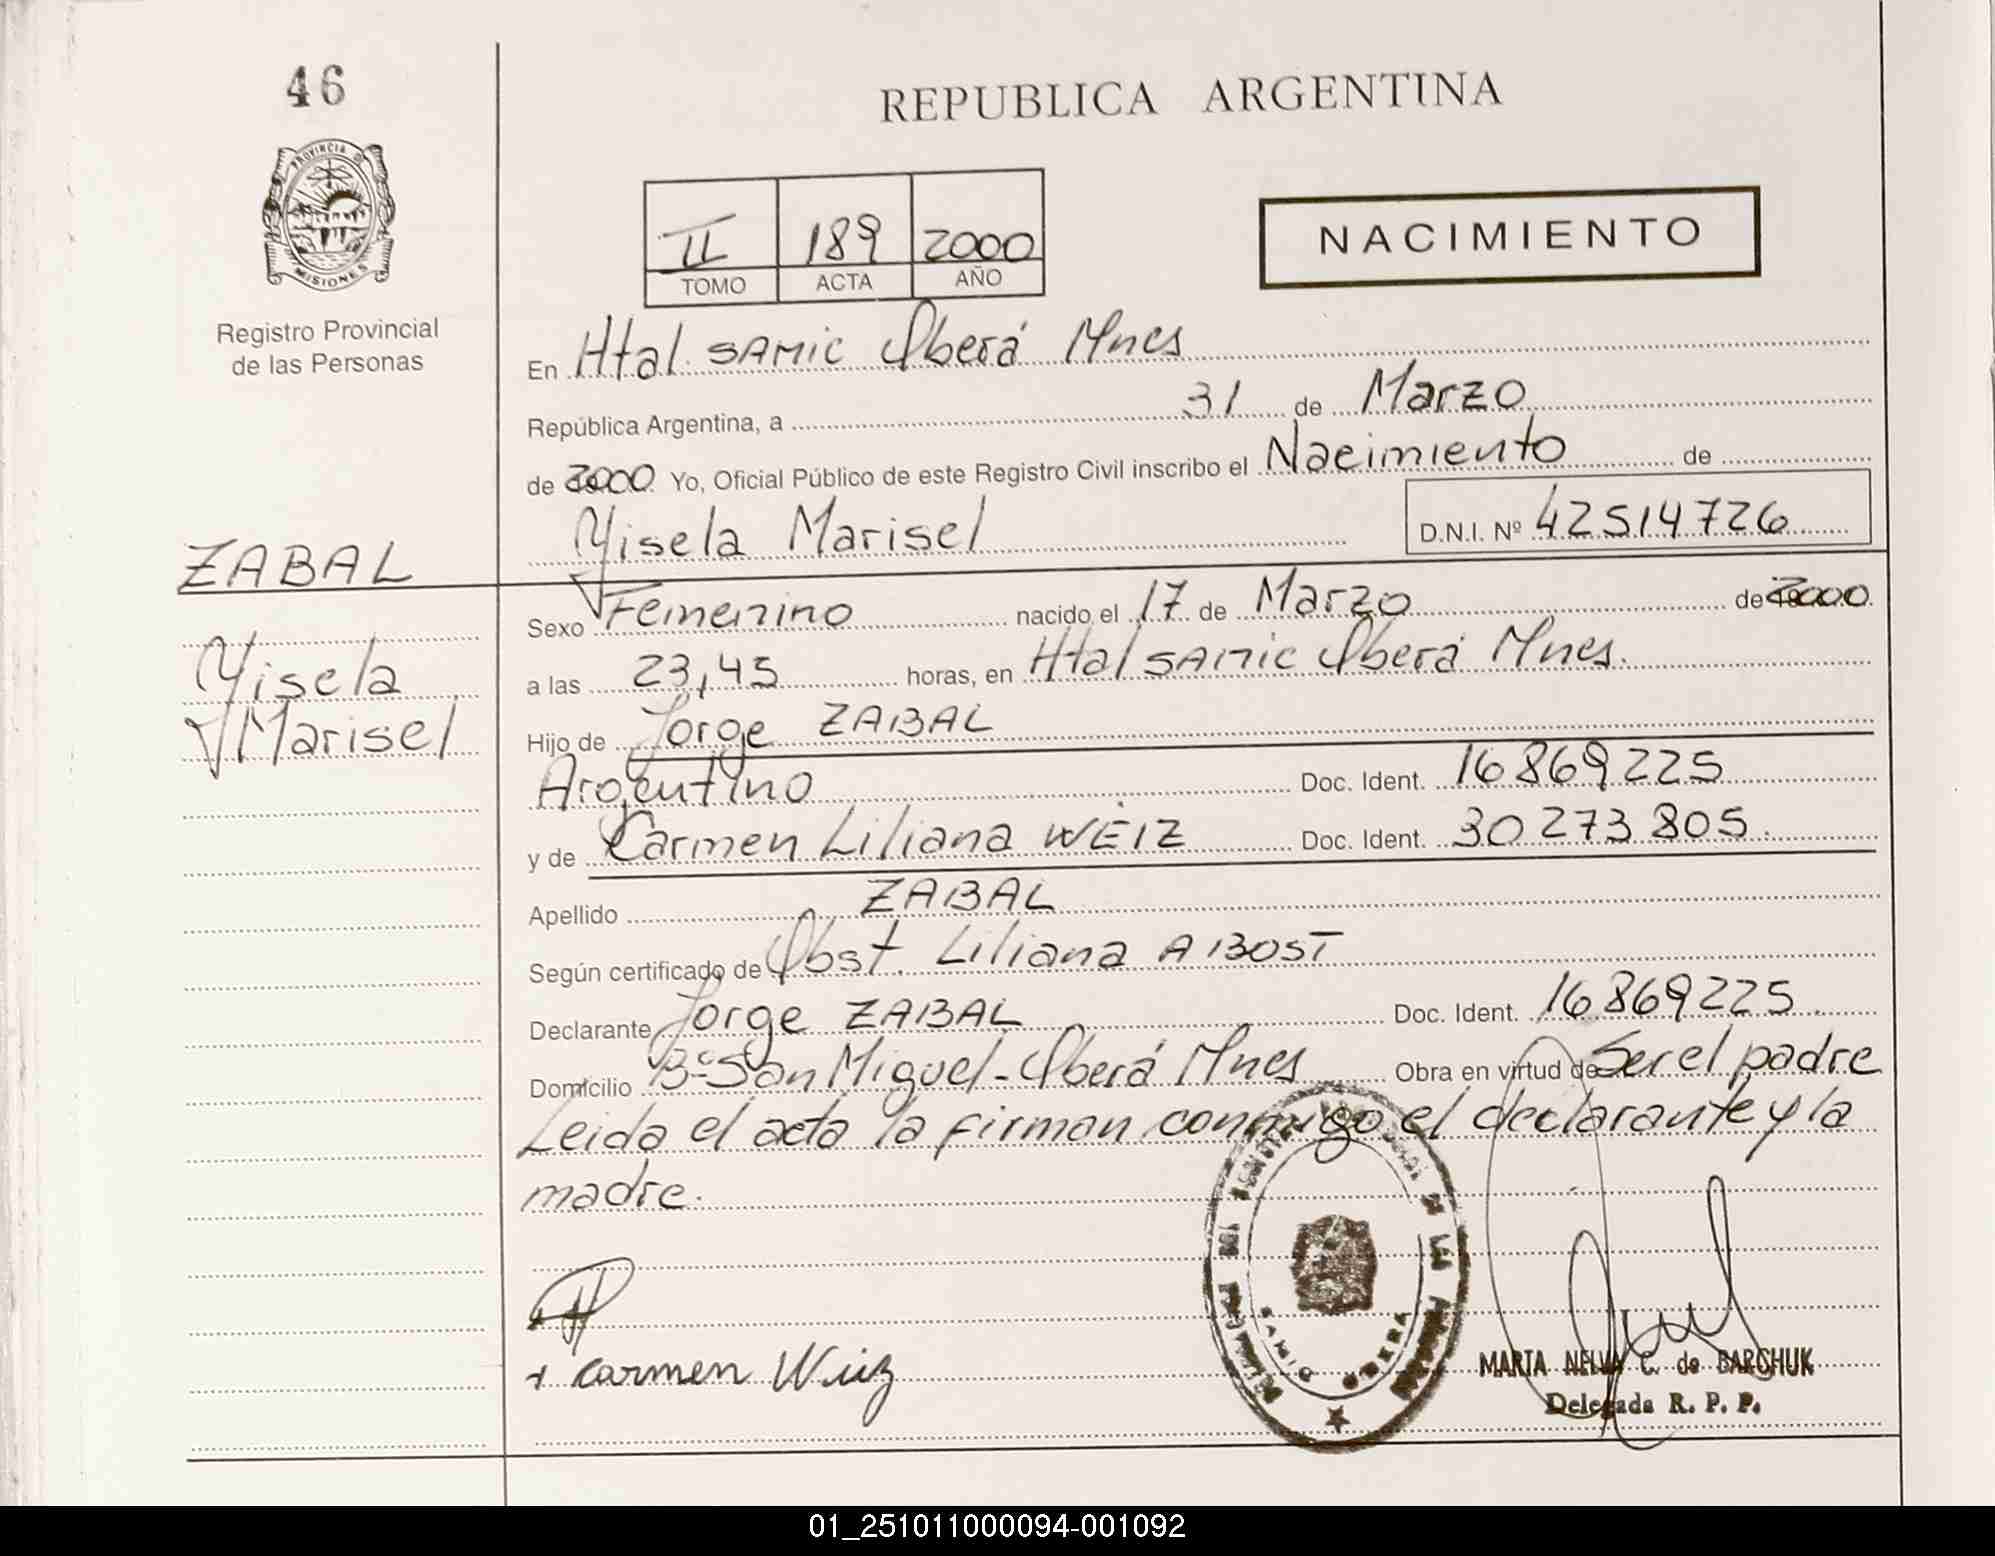 46
REPUBLICA ARGENTINA
PROVINCIA DE
MISIONES
Registro Provincial
de las Personas
II 189 2000
TOMO ACTA AÑO
NACIMIENTO
En Htal. SAMIC Oberá Mnes
República Argentina, a 31 de Marzo
de 2000 Yo, Oficial Público de este Registro Civil inscribo el Nacimiento de
Yisela Marisel D.N.I. Nº 42514726
ZABAL
Yisela
Marisel
Sexo Femenino nacido el 17 de Marzo de 2000
a las 23,45 horas, en Htal SAMIC Oberá Mnes.
Hijo de Jorge ZABAL
Argentino Doc. Ident. 16869225
y de Carmen Liliana WEIZ Doc. Ident. 30273805
Apellido ZABAL
Según certificado de Obst. Liliana ABOST
Declarante Jorge ZABAL Doc. Ident. 16869225
Domicilio Bº San Miguel - Oberá Mnes Obra en virtud de Ser el padre
Leida el acta la firman conmigo el declarante y la
madre.
SAMIC OBERA
+ Carmen Weiz
MARTA NELVA C. de BARCHUK
Delegada R. P. P.
01_251011000094-001092